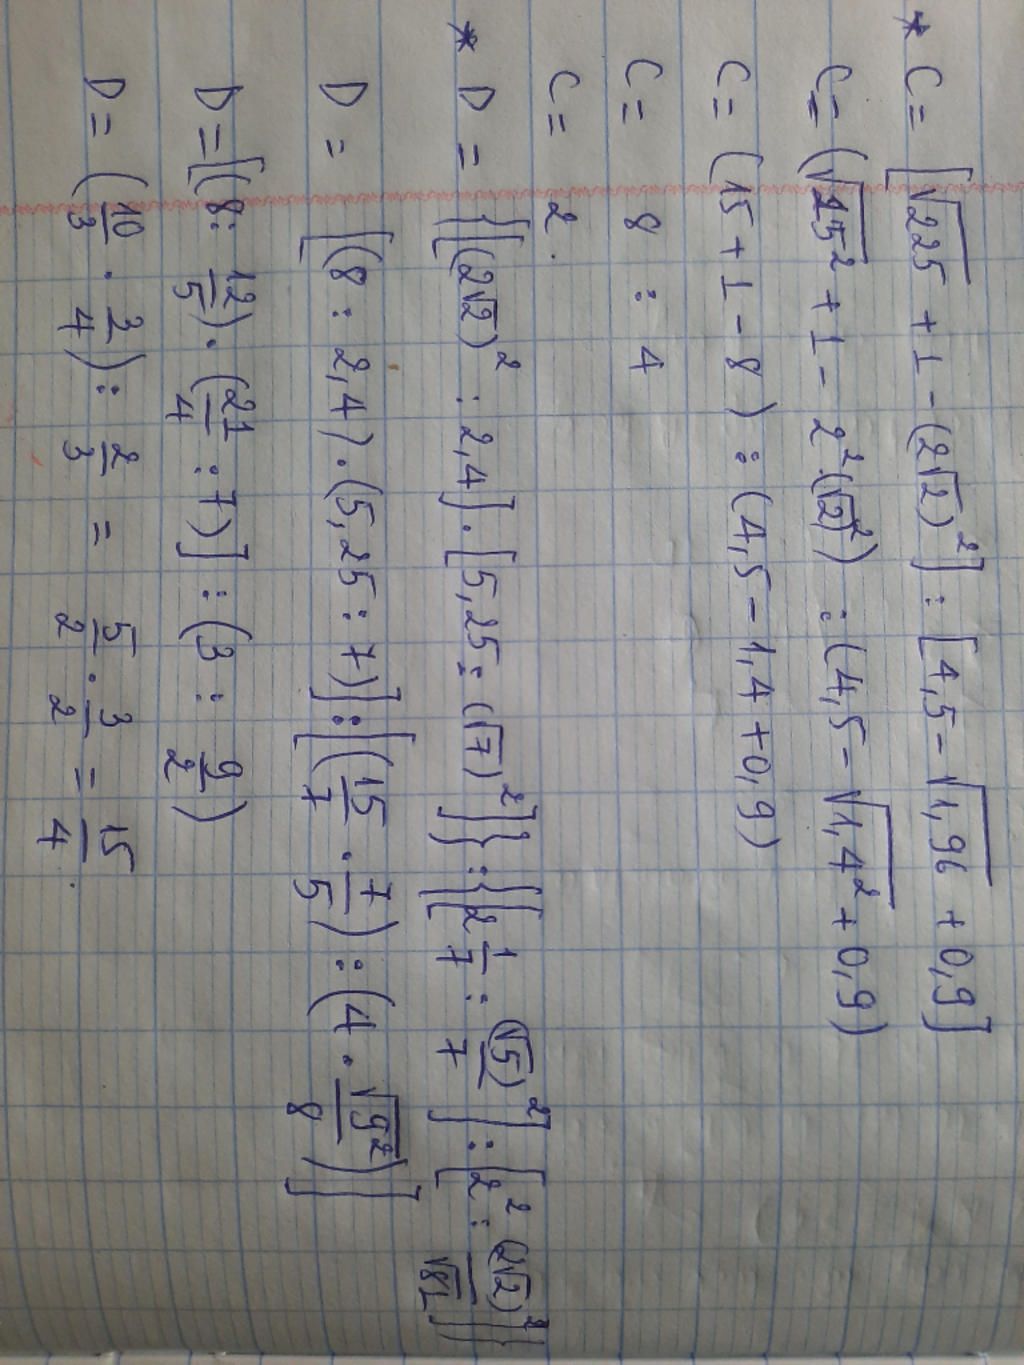 * C = [√225 + 1 - (2√2)²] : [4,5 - √1,96 + 0,9]
C = (√15² + 1 - 2²·(√2)²) : (4,5 - √1,4² + 0,9)
C = (15 + 1 - 8) : (4,5 - 1,4 + 0,9)
C = 8 : 4
C = 2.
* D = {[(2√2)² : 2,4] · [5,25 : (√7)²]} : {[2 1/7 : (√5)²/7] : [2² : (2√2)²/√81]}
D = [(8 : 2,4) · (5,25 : 7)] : [(15/7 · 7/5) : (4 · √9²/8)]
D = [(8 : 12/5) · (21/4 : 7)] : (3 : 9/2)
D = (10/3 · 3/4) : 2/3 = 5/2 · 3/2 = 15/4.